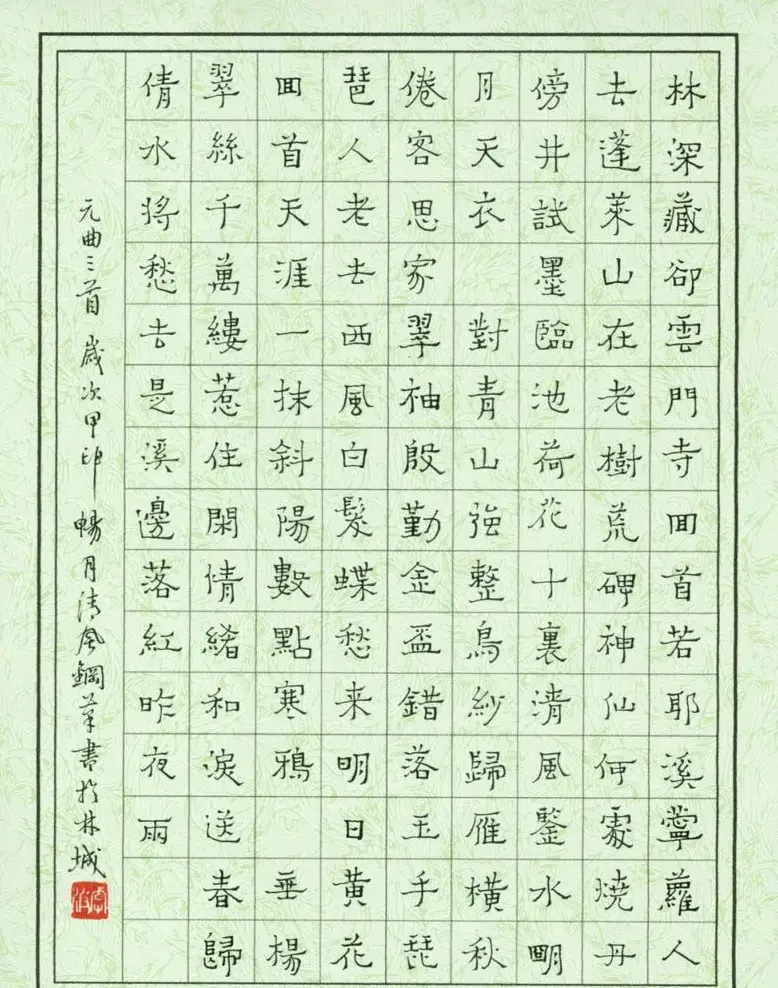 林深藏卻雲門寺回首若耶溪寧蘿人
去蓬萊山在老樹荒碑神仙何處燒丹
傍井試墨臨池荷花十裏清風鑒水明
月天衣 對青山強整鳥紗歸雁橫秋
倦客思家翠袖殷勤金盃錯落玉手琵
琶人老去西風白髮蝶愁来明日黃花
回首天涯一抹斜陽數點寒鴉 垂楊
翠絲千萬縷惹住閑情緒和淚送春歸
倩水將愁去是溪邊落紅昨夜雨
元曲三首 歲次甲卯 暢月清風鋼筆書於林城